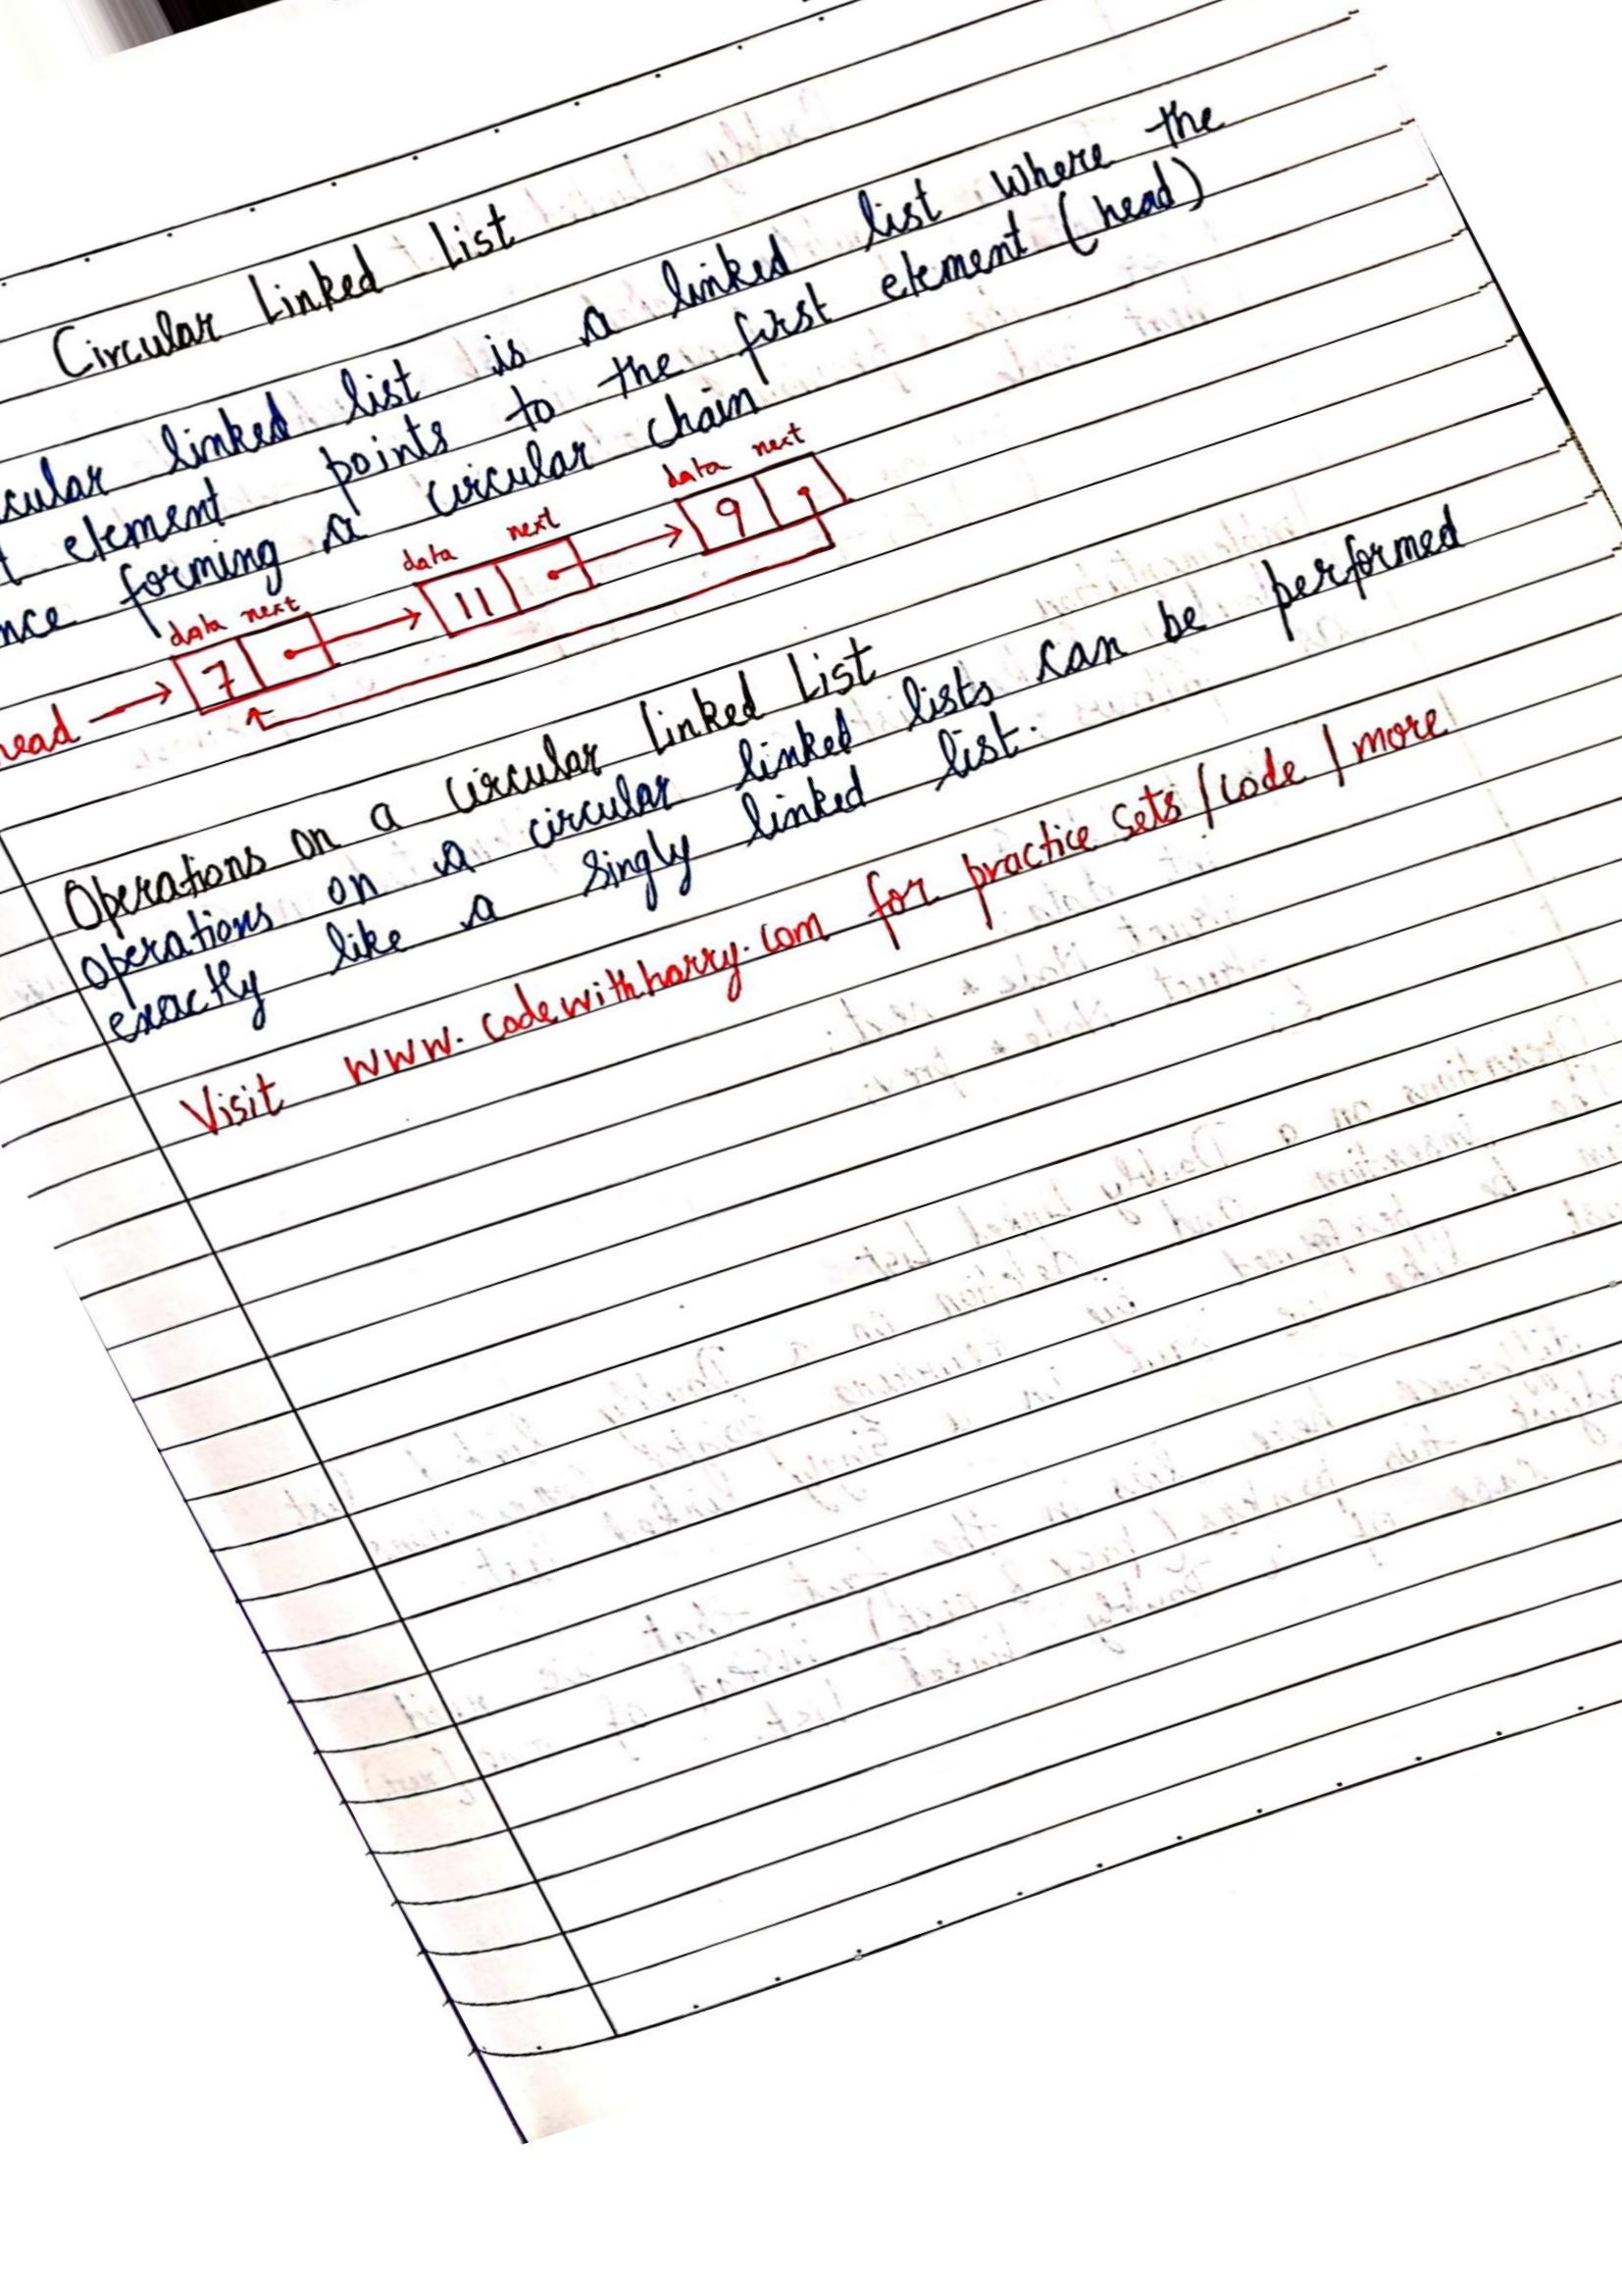 Circular Linked List
cular linked list is a linked list where the
t element points to the first element (head)
nce forming a circular chain
data next data next data next
head → 7 11 9
Operations on a circular linked List
operations on a circular linked lists can be performed
exactly like a singly linked list.
Visit www.codewithharry.com for practice sets/code/more